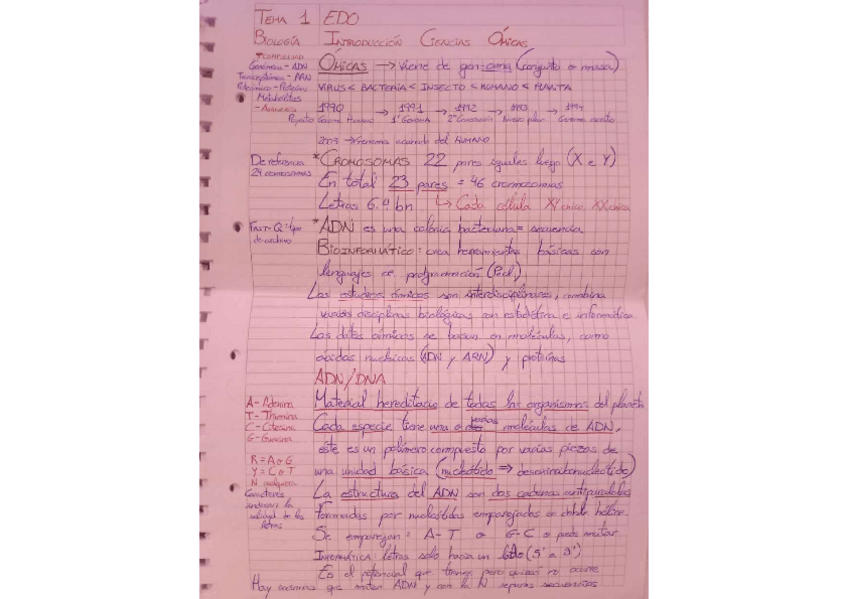 TEMA 1 EDO
BIOLOGÍA INTRODUCCIÓN CIENCIAS ÓMICAS
ÓMICAS → Viene de gen-oma (conjunto o masa)
Genómica - ADN
Transcriptómica - ARN
Proteómica - Proteína
Metabolitos
VIRUS < BACTERIA < INSECTO < HUMANO < PLANTA
1990 → 1991 → 1992 → 1993 → 1994
Proyecto Genoma Humano
2003 → Genoma HUMANO
De referencia
24 cromosomas
*CROMOSOMAS 22 pares iguales luego (X e Y)
En total 23 pares = 46 cromosomas
Letras 6.4 bn ↳ Cada célula XY chico, XX chica
FAST-Q: tipo
de archivo
*ADN es una colonia bacteriana = secuencia
BIOINFORMÁTICO: crea herramientas básicas con
lenguajes de programación (Perl)
Los estudios ómicos son interdisciplinares, combina
varias disciplinas biológicas con estadística e informática
Los datos ómicos se basan en moléculas, como
ácidos nucleicos (ADN y ARN) y proteínas
ADN/DNA
A - Adenina
T - Thimina
C - Citosina
G - Guanina
R = A o G
Y = C o T
N cualquiera
Caracteres
indican la
calidad de las
letras
Material hereditario de todos los organismos del planeta
Cada especie tiene una o varias moléculas de ADN,
este es un polímero compuesto por varias piezas de
una unidad básica (nucleótido ⇒ desoxirribonucleótido)
La estructura del ADN son dos cadenas antiparalelas
formadas por nucleótidos emparejados en doble hélice.
Se emparejan: A-T o G-C o puede mutar
INFORMÁTICA: letras solo hacia un lado (5' a 3')
Es el potencial que tienes pero quizás no ocurre
Hay que miden ADN y con la N separas secuencias